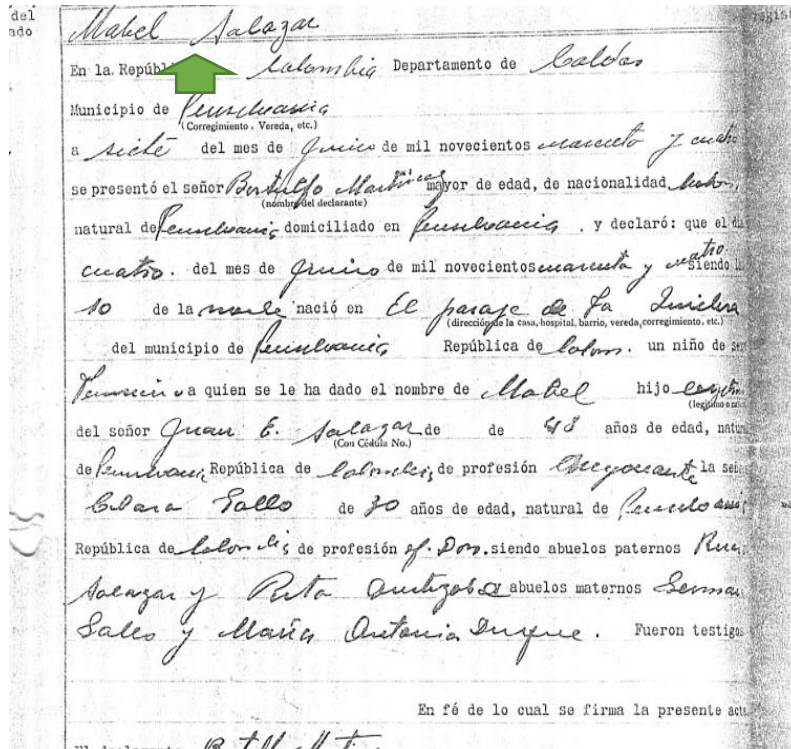 del
ado
Mabel Salazar
En la Repúbli Colombia Departamento de Caldas
Municipio de Pensilvania
(Corregimiento, Vereda, etc.)
a siete del mes de Junio de mil novecientos cuarenta y cuatro
se presentó el señor Bertulfo Martínez mayor de edad, de nacionalidad
(nombre del declarante)
natural de Pensilvania domiciliado en Pensilvania , y declaró: que el día
cuatro. del mes de Junio de mil novecientos cuarenta y cuatro siendo la
10 de la noche nació en El paraje de La
(dirección de la casa, hospital, barrio, vereda, corregimiento, etc.)
del municipio de Pensilvania República de Colom. un niño de sex
Femenino a quien se le ha dado el nombre de Mabel hijo
(legítimo o na
del señor Juan E. Salazar de de 48 años de edad, natu
(Con Cédula No.)
de Pensilvania República de Colombia, de profesión la señ
Clara Gallo de 30 años de edad, natural de Pensilvania
República de Colombia de profesión of. Dom. siendo abuelos paternos
Salazar y Rita y abuelos maternos German
Gallo y María Antonia Duque. Fueron testigos
En fé de lo cual se firma la presente acta